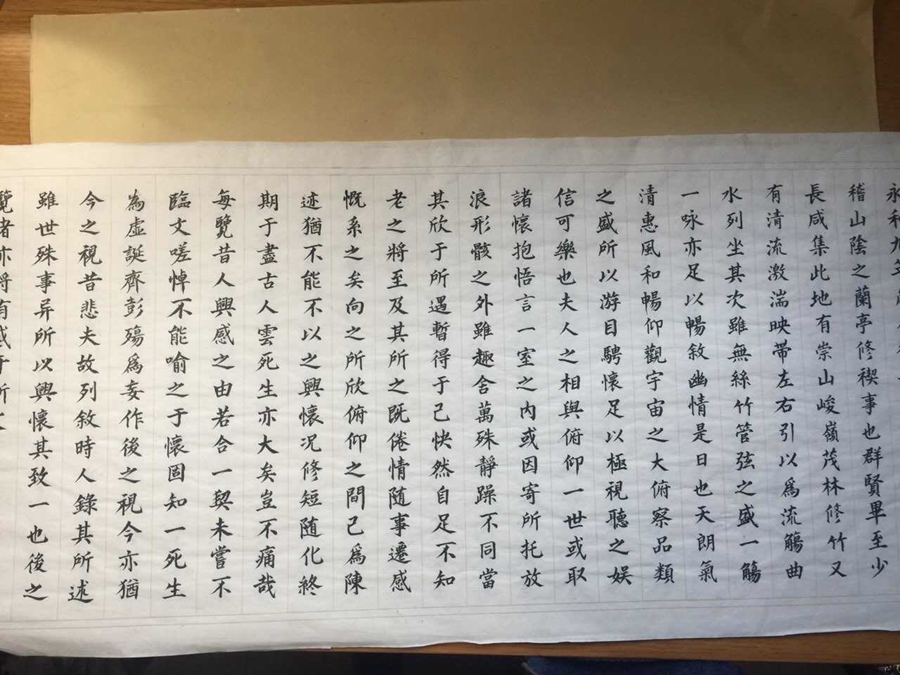 永和九
稽山陰之蘭亭修禊事也群賢畢至少
長咸集此地有崇山峻嶺茂林修竹又
有清流激湍映帶左右引以為流觴曲
水列坐其次雖無絲竹管弦之盛一觴
一咏亦足以暢敘幽情是日也天朗氣
清惠風和暢仰觀宇宙之大俯察品類
之盛所以游目騁懷足以極視聽之娱
信可樂也夫人之相與俯仰一世或取
諸懷抱悟言一室之内或因寄所托放
浪形骸之外雖趣舍萬殊靜躁不同當
其欣于所遇暫得于己快然自足不知
老之將至及其所之既倦情随事遷感
慨系之矣向之所欣俯仰之間已為陳
迹猶不能不以之興懷况修短随化終
期于盡古人雲死生亦大矣豈不痛哉
每覽昔人興感之由若合一契未嘗不
臨文嗟悼不能喻之于懷固知一死生
為虛誕齊彭殤為妄作後之視今亦猶
今之視昔悲夫故列敘時人錄其所述
雖世殊事异所以興懷其致一也後之
覽者亦將有感于斯文